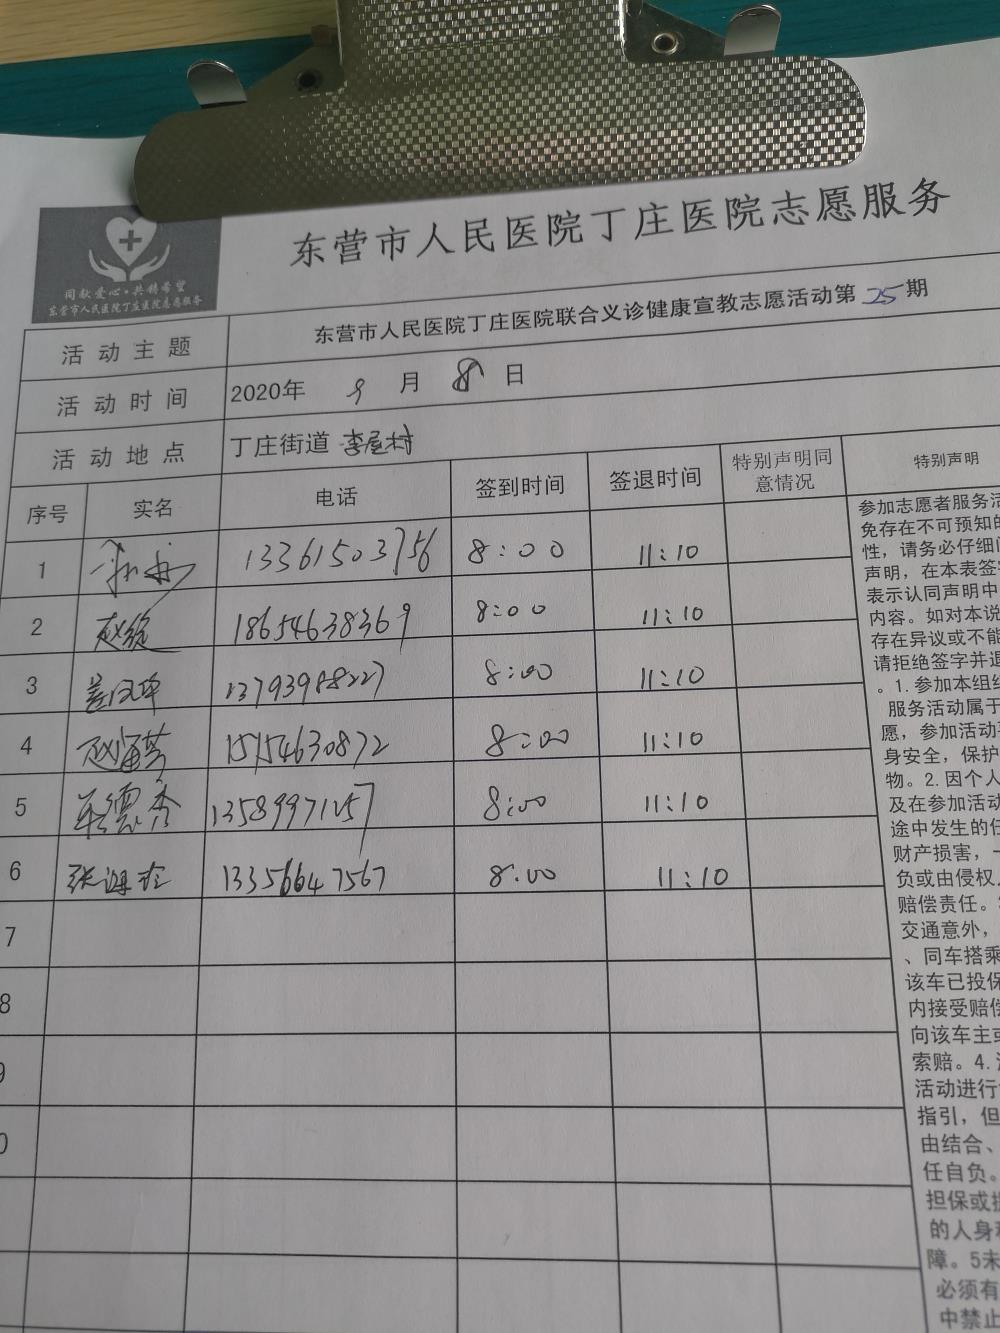 东营市人民医院丁庄医院志愿服务
同献爱心·共铸希望
东营市人民医院丁庄医院志愿服务
活动主题 东营市人民医院丁庄医院联合义诊健康宣教志愿活动第25期
活动时间 2020年 9 月 8 日
活动地点 丁庄街道 李屋村
序号 实名 电话 签到时间 签退时间 特别声明同意情况 特别声明
1 13361503756 8:00 11:10
2 18654638369 8:00 11:10
3 13793988227 8:00 11:10
4 15154630872 8:00 11:10
5 13589971157 8:00 11:10
6 13356647567 8:00 11:10
7
8
9
0
参加志愿者服务活
免存在不可预知的
性，请务必仔细
声明，在本表签
表示认同声明中
内容。如对本说
存在异议或不能
请拒绝签字并退
。1.参加本组织
服务活动属于
愿，参加活动
身安全，保护
物。2.因个人
及在参加活动
途中发生的任
财产损害，一
负或由侵权
赔偿责任。
交通意外，
、同车搭乘
该车已投保
内接受赔偿
向该车主或
索赔。4.
活动进行
指引，但
由结合、
任自负。
担保或
的人身
障。5未
必须有
中禁止